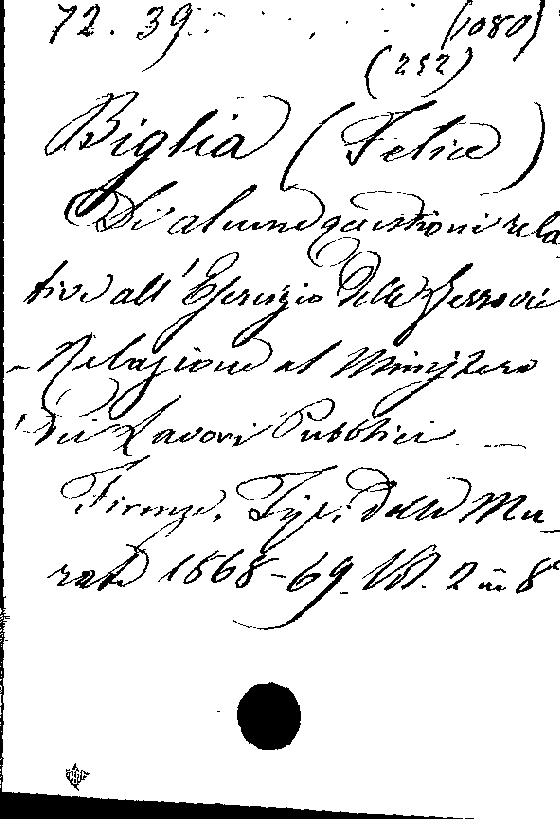 72. 39. (1080)
(252)
Biglia (Felice)
Di alcune questioni rela
tive all'Esercizio delle Ferrovie
- Relazione al Ministero
dei Lavori Pubblici —
Firenze, Tip. delle Mu_
rate 1868-69. Vol. 2 in 8°